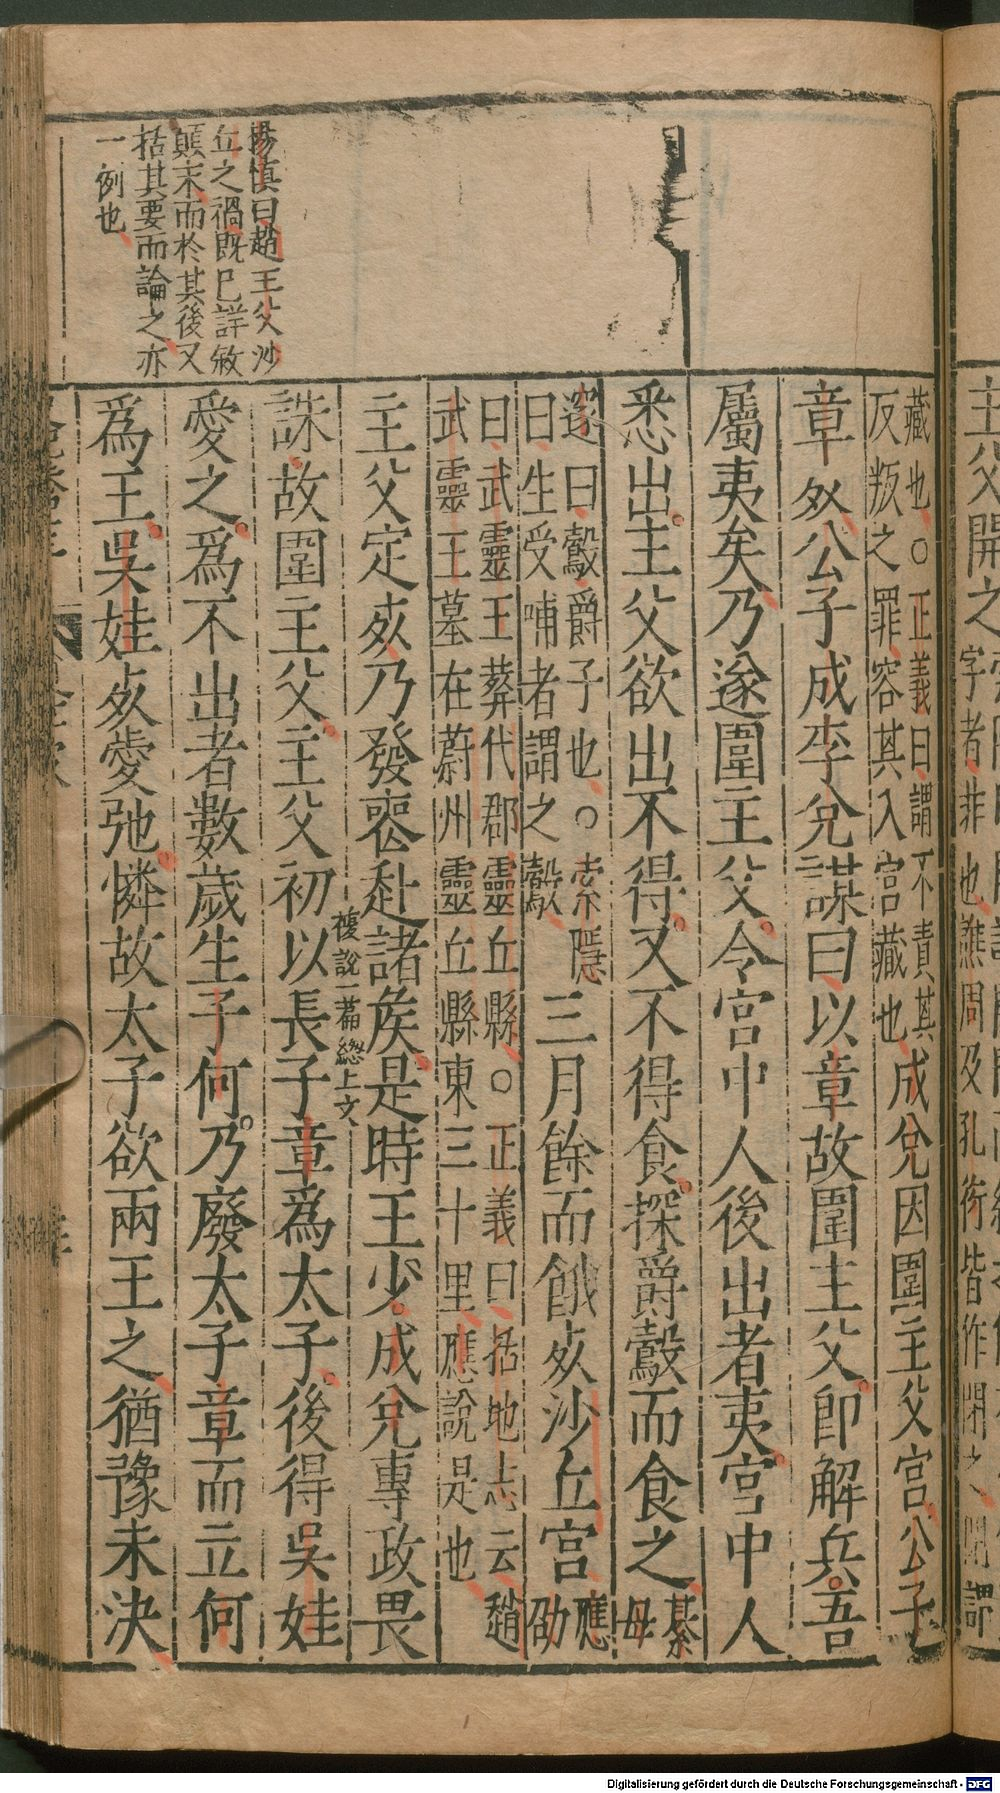 楊慎曰趙王父沙
丘之禍既已詳敘
顛末而於其後又
括其要而論之亦
一例也
藏也○正義曰謂不責其
反叛之罪容其入宮藏也
成兌因圍主父宮公子
章死公子成李兌謀曰以章故圍主父即解兵吾
屬夷矣乃遂圍主父令宮中人後出者夷宮中人
悉出主父欲出不得又不得食探爵鷇而食之
綦
母
邃曰鷇爵子也○索隱
曰生受哺者謂之鷇
三月餘而餓死沙丘宮
應
劭
曰武靈王葬代郡靈丘縣○正義曰括地志云趙
武靈王墓在蔚州靈丘縣東三十里應說是也
主父定死乃發喪赴諸侯是時王少成兌專政畏
複說一篇總上文
誅故圍主父主父初以長子章為太子後得吳娃
愛之為不出者數歲生子何乃廢太子章而立何
為王吳娃死愛弛憐故太子欲兩王之猶豫未決
主父開之
字者非也譙周及孔衍皆作閉之
Digitalisierung gefördert durch die Deutsche Forschungsgemeinschaft - DFG